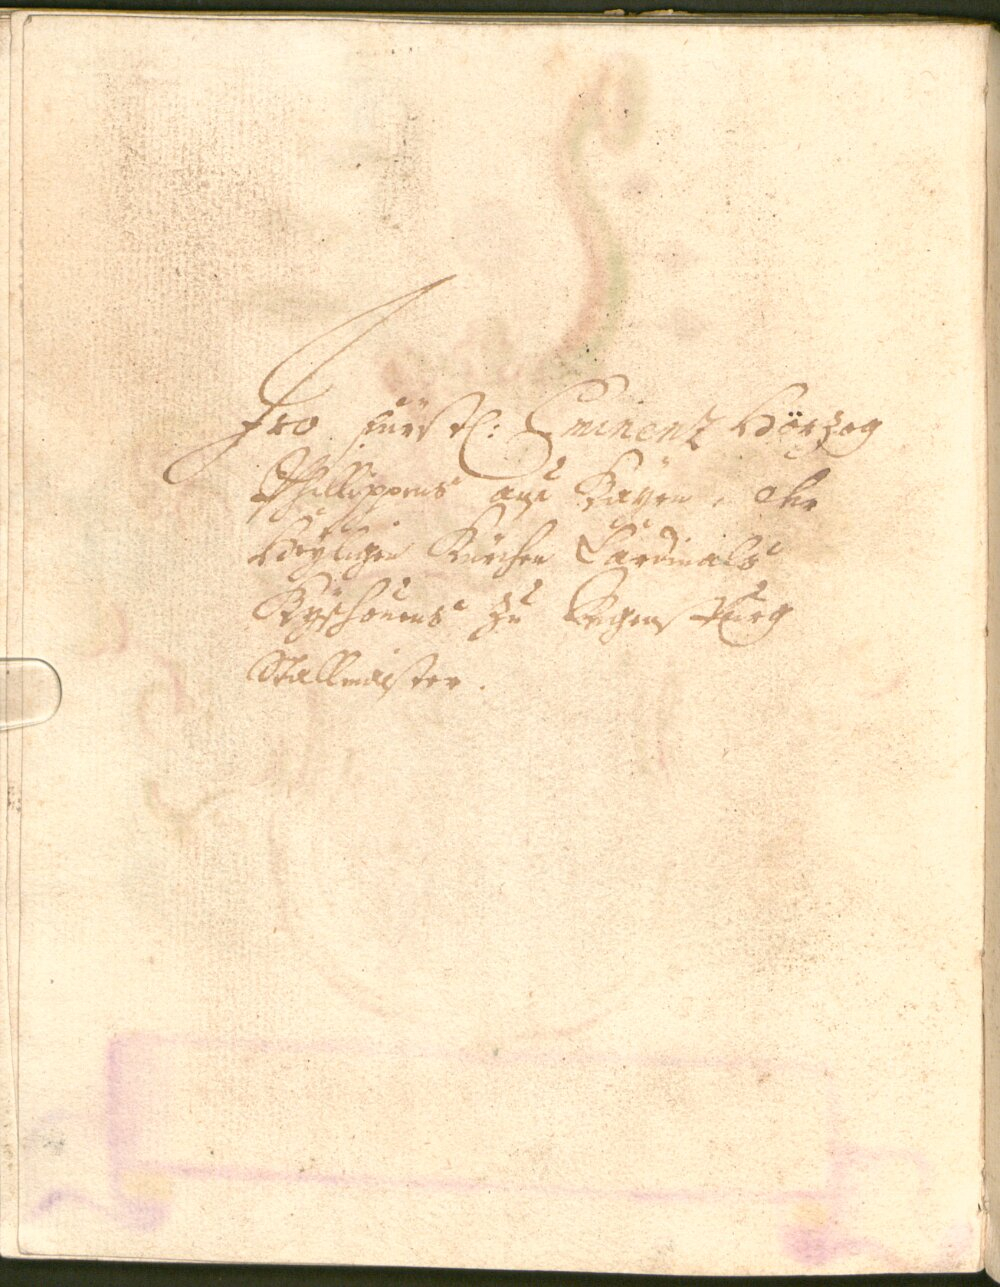 Iro Fürstl: Eminentz Hörzog
Phillippens auß Bayrn, der
Heyligen Kürchen Cardinals
Byschouens zu Regenspurg
Stallmaister.